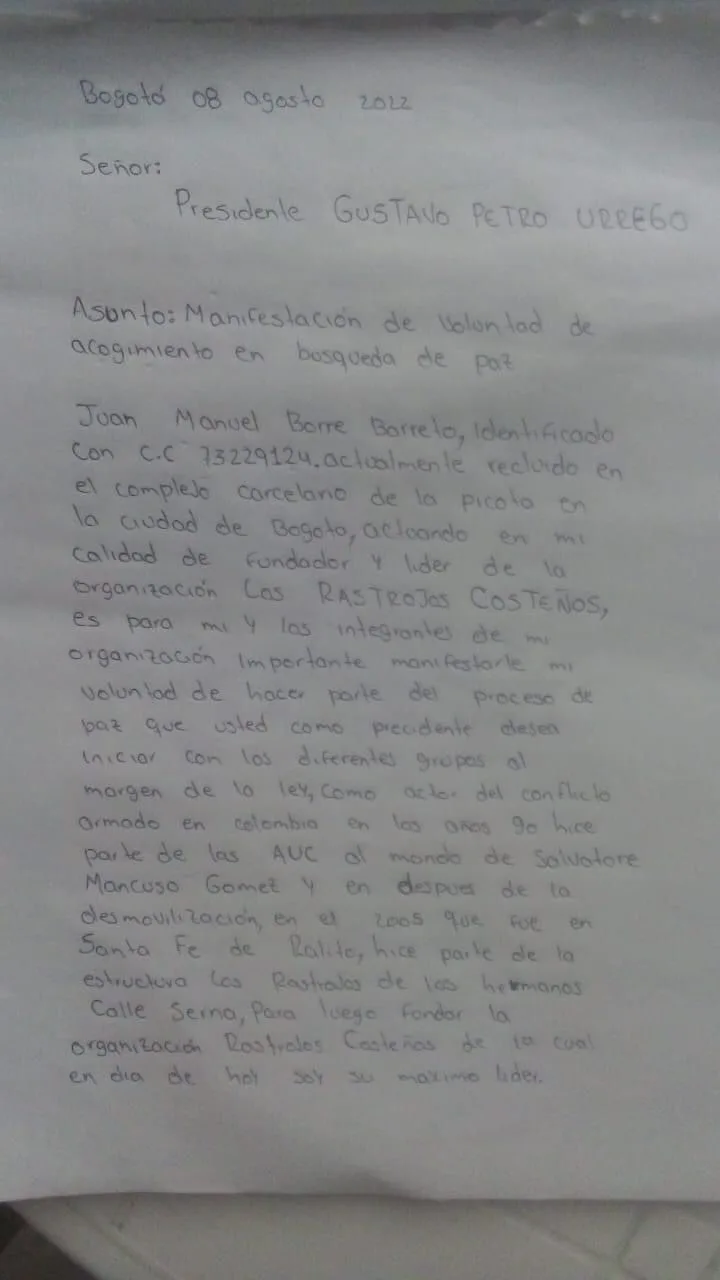 Bogotá 08 agosto 2022
Señor:
Presidente GUSTAVO PETRO URREGO
Asunto: Manifestación de voluntad de
acogimiento en busqueda de paz
Juan Manuel Borre Barreto, identificado
con C.C 73229124. actualmente recluido en
el complejo carcelario de la picota en
la ciudad de Bogota, actuando en mi
calidad de fundador y lider de la
organización Los RASTROJOS COSTEÑOS,
es para mi y los integrantes de mi
organización importante manifestarle mi
voluntad de hacer parte del proceso de
paz que usted como precidente desea
iniciar con los diferentes grupos al
margen de la ley, como actor del conflicto
armado en colombia en los años 90 hice
parte de las AUC al mando de Salvatore
Mancuso Gomez y en despues de la
desmovilización, en el 2005 que fue en
Santa Fe de Ralito, hice parte de la
estructura los Rastrojos de los hermanos
Calle Serna, Para luego fundar la
organización Rastrojos Costeños de la cual
en dia de hoy soy su maximo lider.